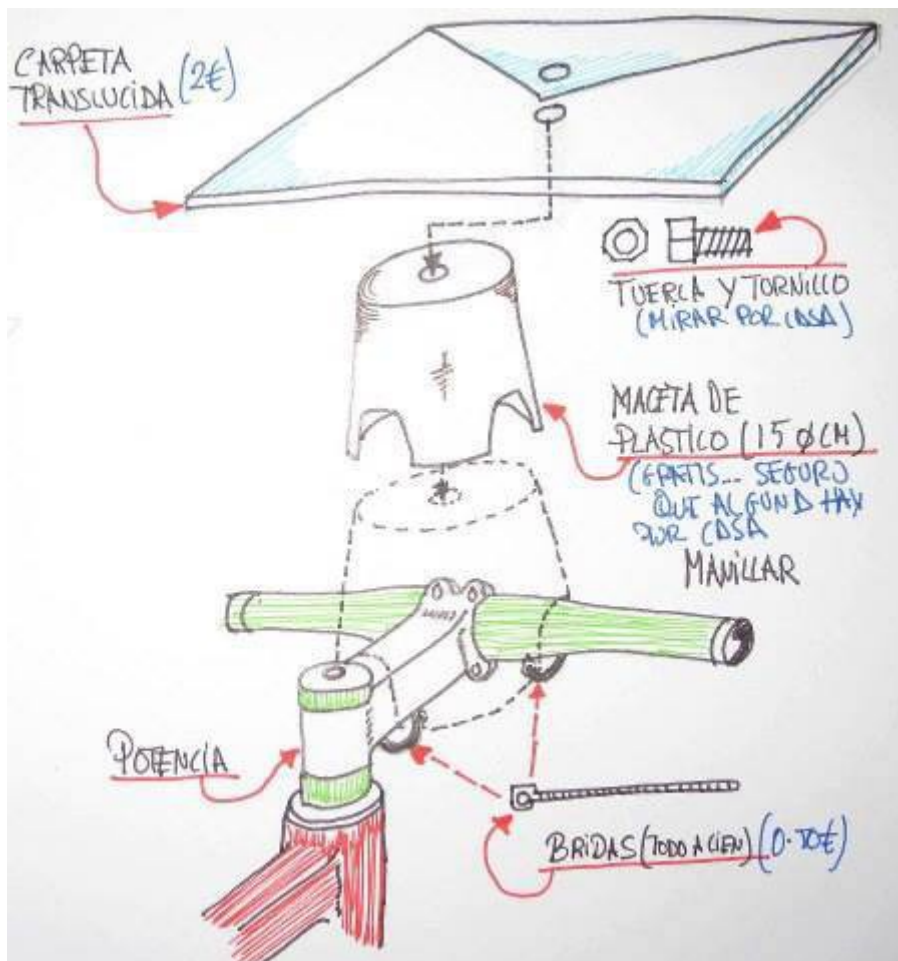 CARPETA
TRANSLUCIDA (2€)
TUERCA Y TORNILLO
(MIRAR POR CASA)
MACETA DE
PLÁSTICO (15 Ø CM)
(GRATIS... SEGURO
QUE ALGUNA HAY
POR CASA
MANILLAR
POTENCIA
BRIDAS (TODO A CIEN) (0.70€)